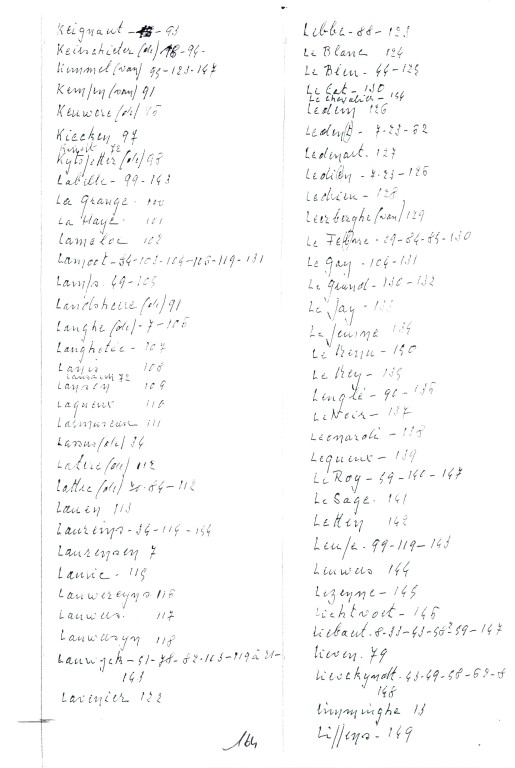 Keignaut - 93
Keirschieter (de) 18-94-
Kemmel (van) 95-123-147
Kempen (van) 91
Keuwere (de) 96
Kiecken 97
Kinsit 72
Kytspotter (de) 98
Labille - 99-143
La Grange. 100
La Haye. 101
Lameloc 102
Lamoot - 34-103-104-105-119-131
Lamps. 49-105
Landsheere (de) 91
Langhe (de) - 7-106
Langhetée - 107
Lanis 108
72
Lanson 109
Laqueux 110
Lasmureau 111
Lassus (de) 34
Latere (de) 112
Lattre (de) 70-84-112
Lauen 113
Laureins - 34-114-144
Laurensen 7
Lauvic. 115
Lauwereyns 116
Lauwers. 117
Lauwersyn 118
Lauwyck - 51-78-82-103-119 à 21-
143
Lavenier 122
Lebbe - 88-123
Le Blanc 124
Le Bleu - 44-125
Le Cat - 130
Le Chevalier - 144
Ledein 126
Leden - 7-23-82
Ledenart. 127
Ledien - 7-23-126
Ledrieu - 128
Leerberghe (van) 129
Le Febvre - 29-84-89-130
Le Gay - 104-131
Le Grand - 130-132
Le Jay - 133
Le Jeusne 134
Le Menu - 190
Le Rey - 135
Lenglé - 90-136
Le Noir - 137
Leonardi - 138
Lequeux - 139
Le Roy - 59-140-147
Le Sage. 141
Letten 142
Leupe. 99-119-143
Leuwers 144
Lezenne - 145
Lichtvoet - 146
Liebaut. 8-33-43-58?-59-147
Lieven. 79
Lievekyndt. 43-49-58-69-8
148
Limminghe 13
Liffens - 149
164